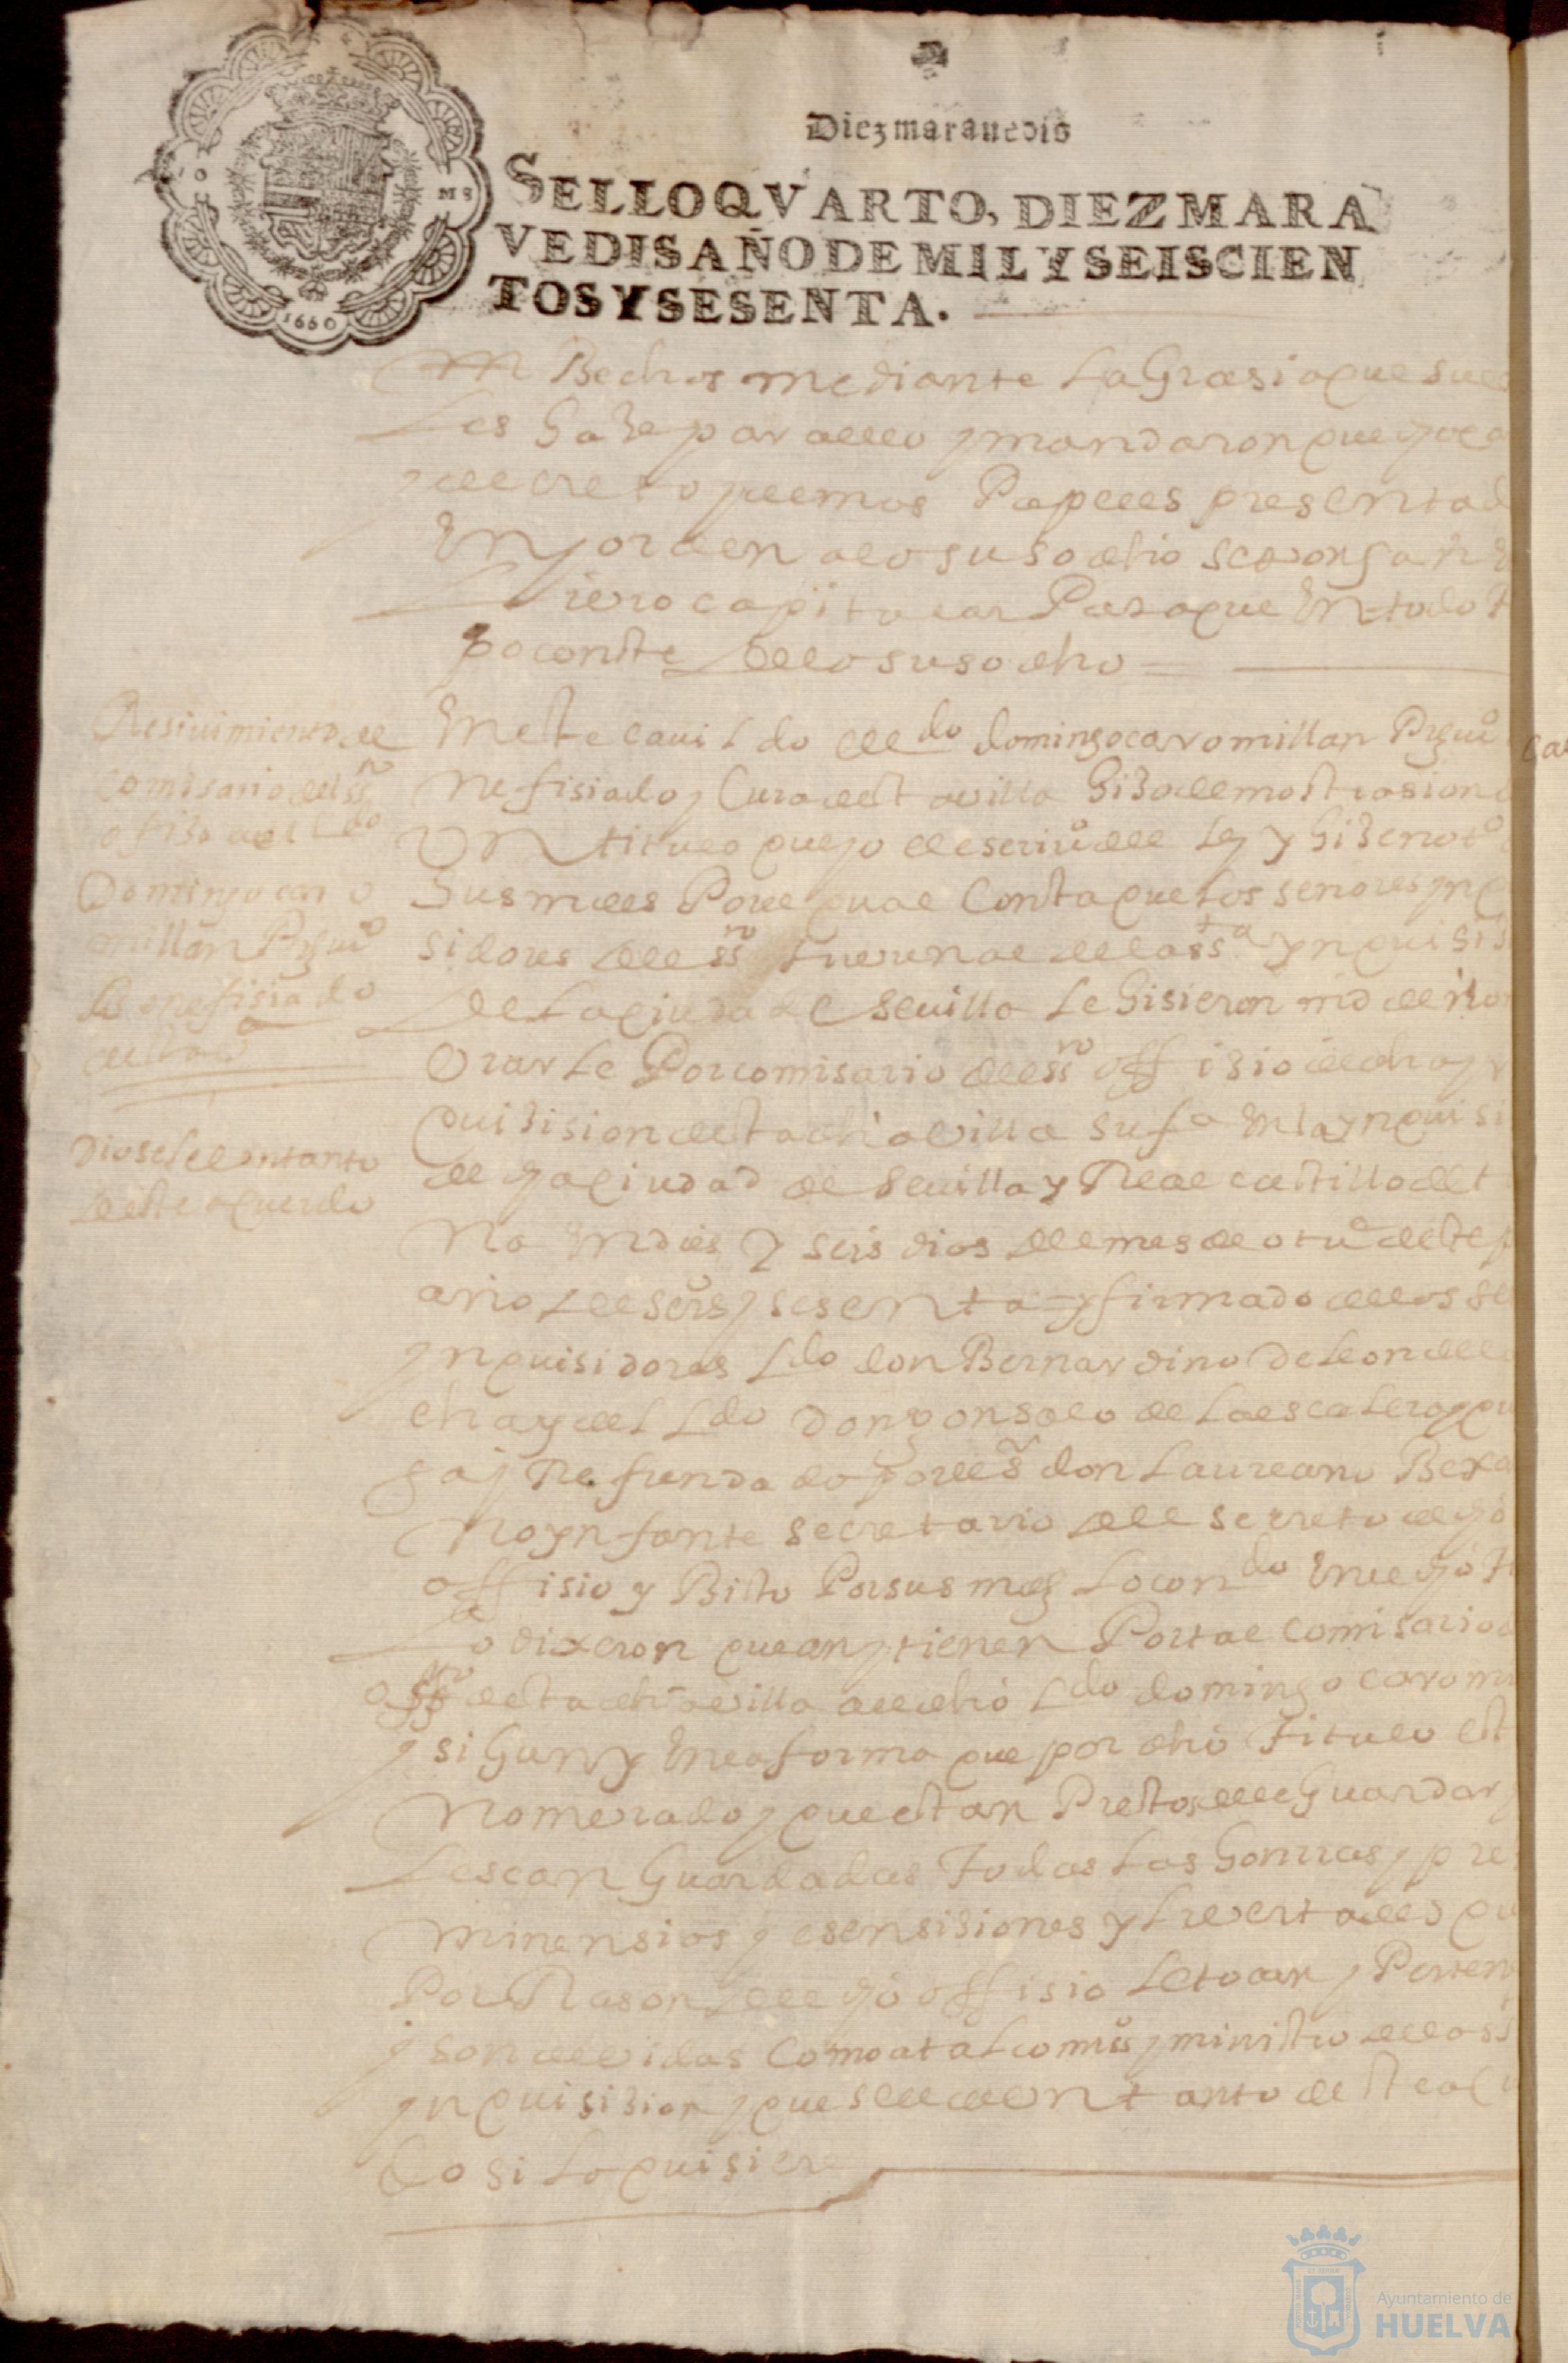 Diez maravedis
SELLO QVARTO, DIEZ MARA
VEDIS AÑO DE MIL Y SEISCIEN
TOS Y SESENTA.
10 MS
1660
mediante La Grasia que su
Les haze para ello y mandaron que
Papeles presentad
En orden a lo suso dho se pongan
capitular Para que En todo
po conste de lo suso dho
Resiuimiento de
comisario del ssto
ofisio al Ldo
Domingo caro
millan Presuo
Benefisiado
Diosele un tanto
deste aquerdo
En este cauildo el Ldo domingo caro millan Presuo
nefisiado y Cura desta villa hiso demostrasion
Un titulo que yo el escriuo ley y hise noto
Sus mdes Por el qual Consta que Los señores ynq
sidores del sto tribunal de la sta ynquisi
de La ciudad de Seuilla Le hisieron md de
Orar Le Por comisario del sto offisio de dha yn
quisision desta dha villa su fa En la ynquisi
de la ciudad de Seuilla y Real castillo de t
na En dies y seis dias del mes de otue deste
año de seis y sesenta y firmado de los se
ynquisidores Ldo don Bernardino de Leon de
cha y del Ldo don gonsalo de La escalera y qui
ga y Refrendado por el sr don Laureano Bexa
no ynfante secretario del secreto de
offisio y Visto Por sus mdes Lo contdo En el
Lo dixeron que an y tienen Por tal comisario
desta dha villa al dho Ldo domingo caro mi
y sigun y En la forma que por dho titulo est
nomerado y que estan Prestos de Guardar
Le sean Guardadas todas Las honrras y pre
minensias y esensisiones y Livertades qu
Por Rason del offisio Le tocan y Perten
y son devidas Como a tal comiso y ministro de la sta
ynquisision y que se le de un tanto deste aqu
do si Lo quisiere
Ayuntamiento de
HUELVA